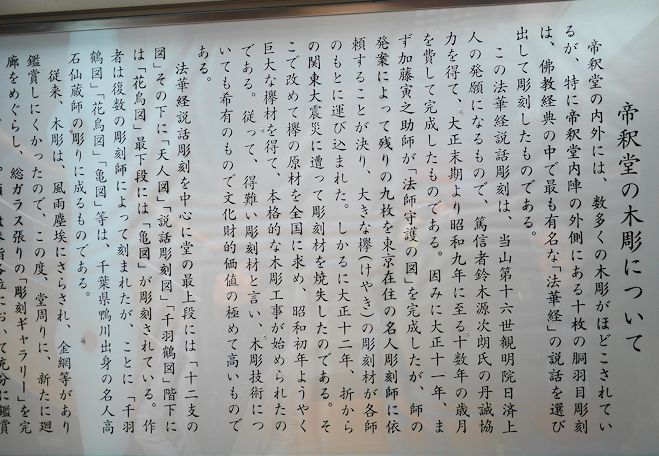 帝釈堂の木彫について
帝釈堂の内外には、数多くの木彫がほどこされてい
るが、特に帝釈堂内陣の外側にある十枚の胴羽目彫刻
は、佛教経典の中で最も有名な「法華経」の説話を選び
出して彫刻したものである。
この法華経説話彫刻は、当山第十六世観明院日済上
人の発願になるもので、篤信者鈴木源次郎氏の丹誠協
力を得て、大正末期より昭和九年に至る十数年の歳月
を費して完成したものである。因みに大正十一年、ま
ず加藤寅之助師が「法師守護の図」を完成したが、師の
発案によって残りの九枚を東京在住の名人彫刻師に依
頼することが決り、大きな欅(けやき)の彫刻材が各師
のもとに運び込まれた。しかるに大正十二年、折から
の関東大震災に遭って彫刻材を焼失したのである。そ
こで改めて欅の原材を全国に求め、昭和初年ようやく
巨大な欅材を得て、本格的な木彫工事が始められたの
である。従って、得難い彫刻材と言い、木彫技術につ
いても希有のもので文化財的価値の極めて高いもので
ある。
法華経説話彫刻を中心に堂の最上段には「十二支の
図」その下に「天人図」「説話彫刻図」「千羽鶴図」階下に
は「花鳥図」最下段には「亀図」が彫刻されている。作
者は復数の彫刻師によって刻まれたが、ことに「千羽
鶴図」「花鳥図」「亀図」等は、千葉県鴨川出身の名人高
石仙蔵師の彫りに成るものである。
従来、木彫は、風雨塵埃にさらされ、金網等があり
鑑賞しにくかったので、この度、堂周りに、新たに廻
廊をめぐらし、総ガラス張りの「彫刻ギャラリー」を完
において充分に鑑賞